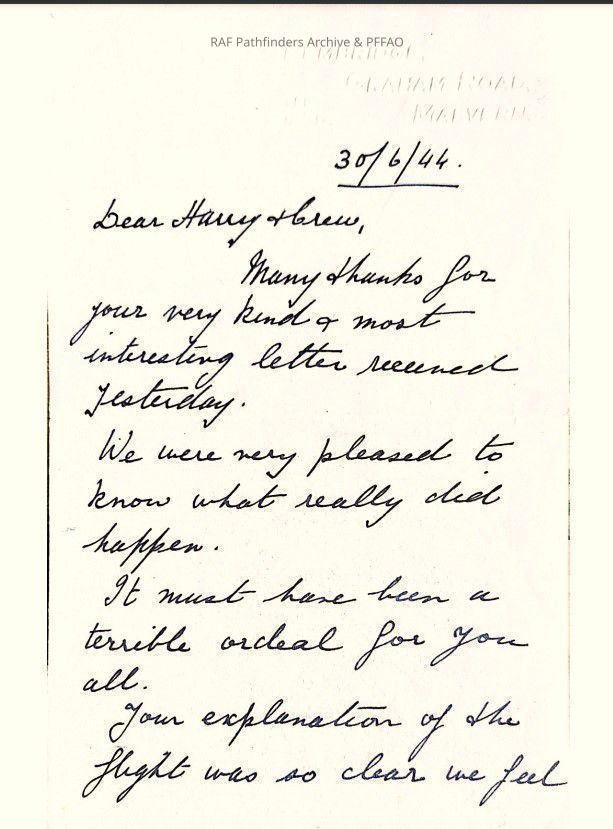 RAF Pathfinders Archive & PFFAO
GRAHAM ROAD,
MALVERN.
30/6/44.
Dear Harry & Crew,
Many thanks for
your very kind & most
interesting letter received
yesterday.
We were very pleased to
know what really did
happen.
It must have been a
terrible ordeal for you
all.
Your explanation of the
flight was so clear we feel